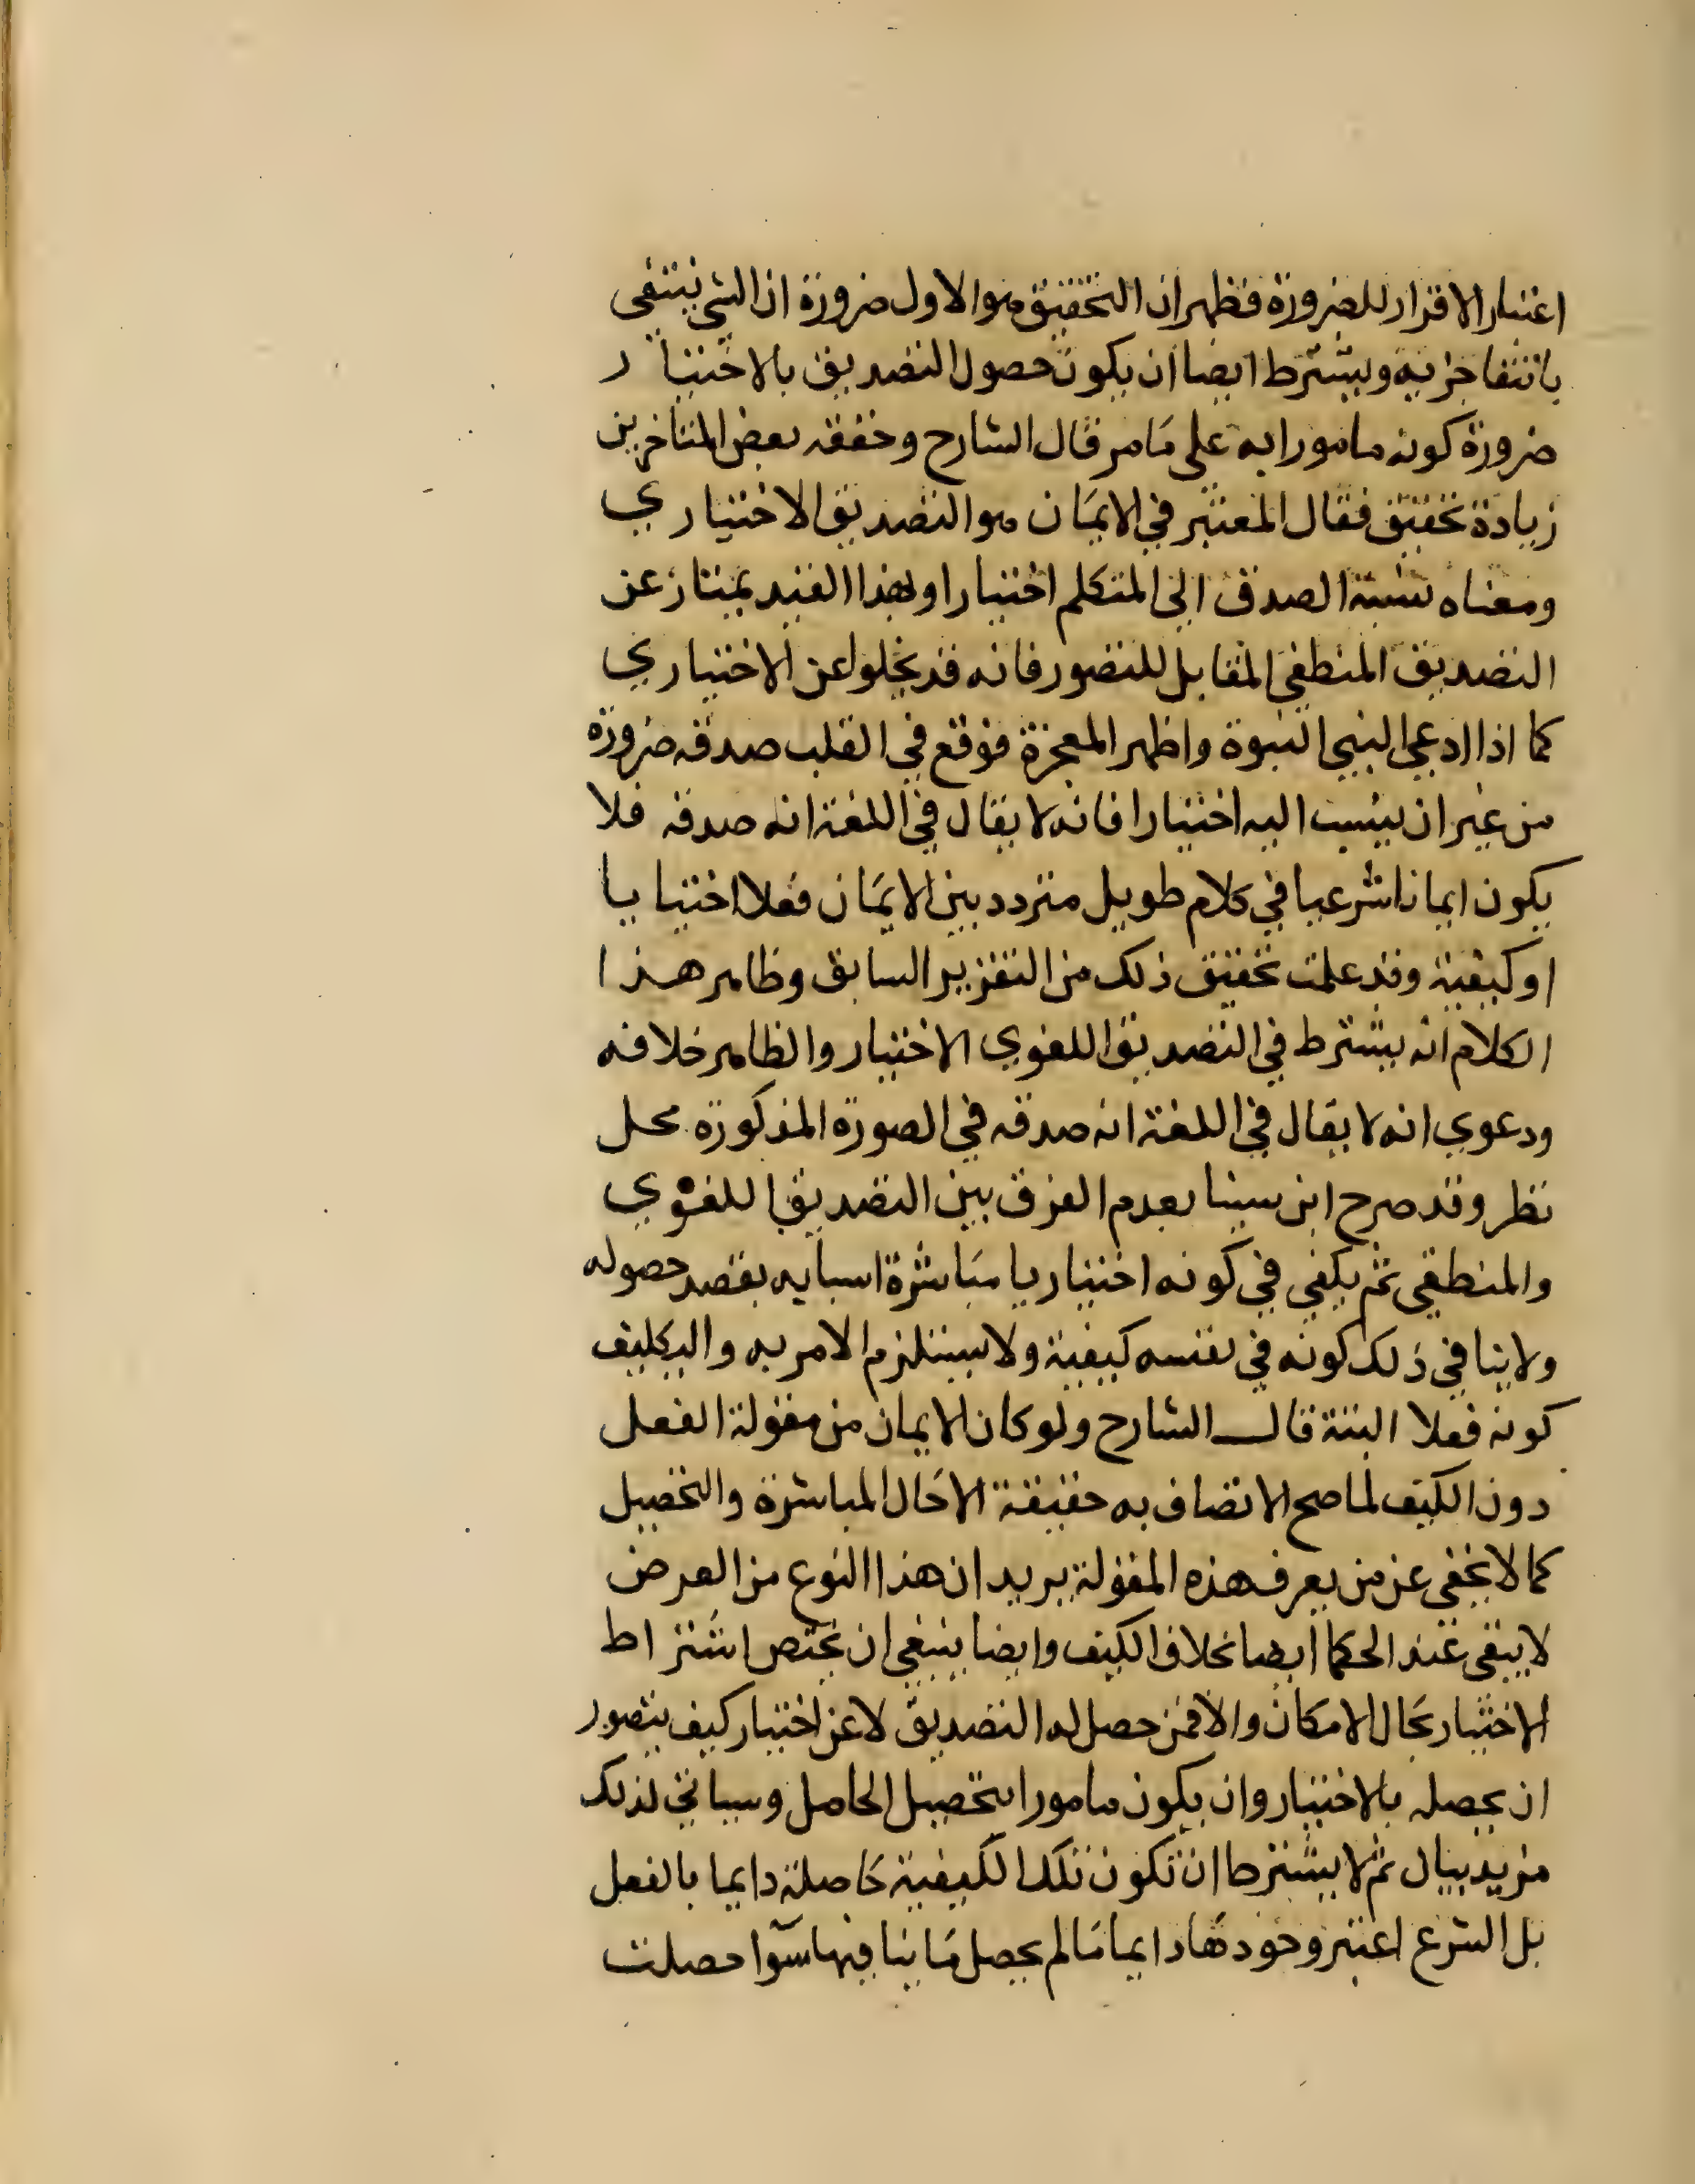 اعتبار الاقرار للضرورة فظهر ان التحقيق هو الاول ضرورة ان الشي ينتفي
بانتفا جزيه ويشترط ايضا ان يكون حصول التصديق بالاختيار
ضرورة كونه مامورا به على مامر قال الشارح وحققه بعض المتاخرين
زيادة تحقيق فقال المعتبر في الايمان هو التصديق الاختياري
ومعناه نسبة الصدق الى المتكلم اختيارا وبهذا القيد يمتاز عن
التصديق المنطقي المقابل للتصور فانه قد يخلوا عن الاختياري
كما اذا ادعى النبي النبوة واظهر المعجزة فوقع في القلب صدقه ضرورة
من غير ان ينسب اليه اختيارا فانه لا يقال في اللغة انه صدقه فلا
يكون ايمانا شرعيا في كلام طويل متردد بين الايمان فعلا اختيا يا
او كيفية وقد علمت تحقيق ذلك من التقرير السابق وظاهر هذا
الكلام انه يشترط في التصديق اللغوي الاختيار والظاهر خلافه
ودعوي انه لا يقال في اللغة انه صدقه في الصورة المذكورة محل
نظر وقد صرح ابن سينا بعدم الفرق بين التصديق اللغوي
والمنطقي ثم يكفي في كونه اختياريا مباشرة اسبابه بقصد حصوله
ولا ينافي ذلك كونه في نفسه كيفية ولا يستلزم الامر به والتكليف
كونه فعلا البتة قال الشارح ولو كان الايمان من مقولة الفعل
دون الكيف لما صح الاتصاف به حقيقة الا حال المباشرة والتحصيل
كما لا يخفي عن من يعرف هذه المقولة يريد ان هذا النوع من العرض
لا يبقي عند الحكما ايضا بخلاف الكيف وايضا ينبغي ان يختص اشتراط
الاختيار بحال الامكان والا فمن حصل له التصديق لا عن اختيار كيف يتصور
ان يحصله بالاختيار وان يكون مامورا بتحصيل الحاصل وسياتي لذلك
مزيد بيان ثم لا يشترط ان تكون تلك الكيفية حاصلة دايما بالفعل
بل الشرع اعتبر وجودها دايما ما لم يحصل ما ينافيها سوا حصلت